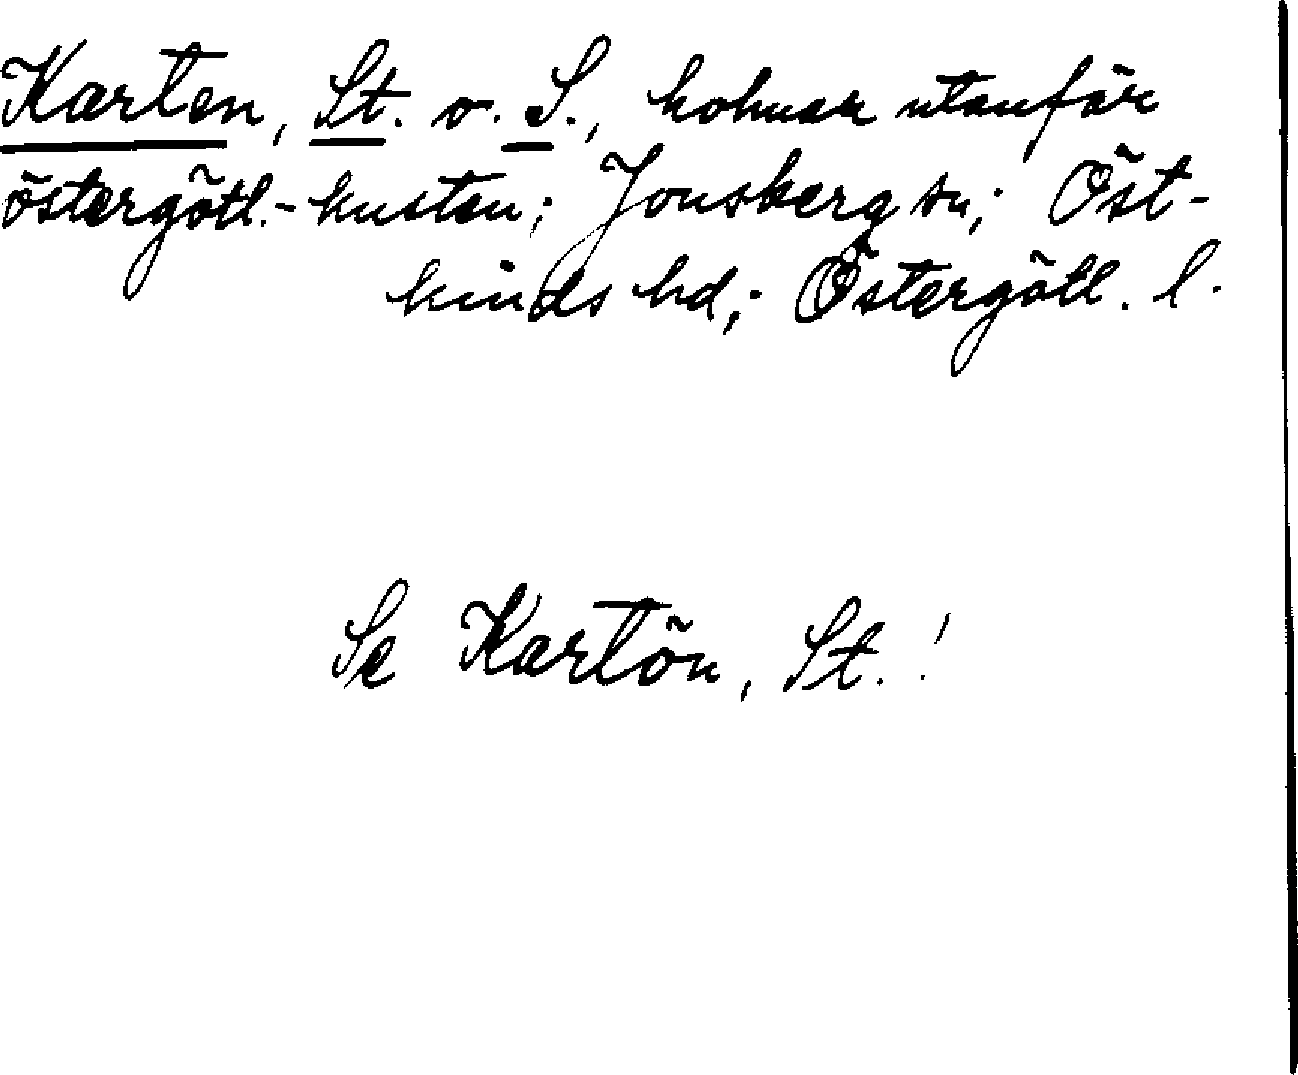 Karten, St. o. S., holmar utanför
östergötl.-kusten; Jonsberg sn; Öst-
kinds hd; Östergötl. l.
Se Kartön, St.!